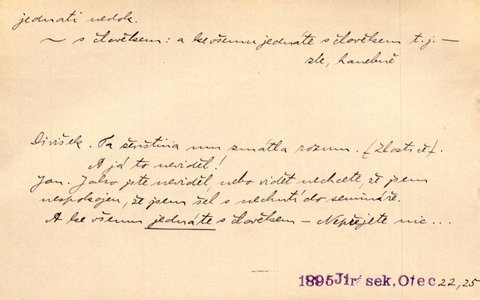 jednati nedok.
~ s člověkem: a ke všemu jednáte s člověkem t. j. —
zle, hanebně
Divíšek. Ta ženština mu zmátla rozum. (Zlostně).
A já to neviděl!
Jan. Jako jste neviděl, nebo vidět nechcete, že jsem
nespokojen, že jsem šel s nechutí do semináře.
A ke všemu jednáte s člověkem — Nepřejete nic...
1895 Jirásek, Otec 22,25